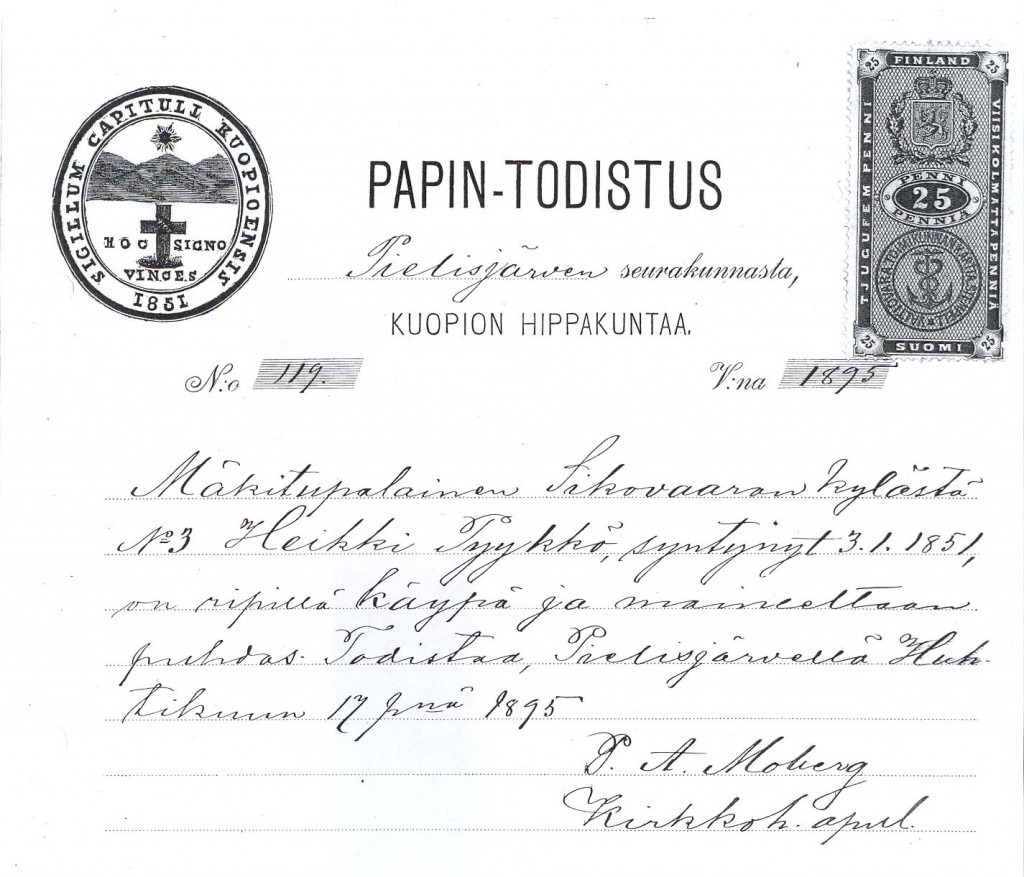 SIGILLUM CAPITULI KUOPIOENSIS
HOC SIGNO
VINCES
1851
PAPIN-TODISTUS
Pielisjärven seurakunnasta,
KUOPION HIPPAKUNTAA.
N:o 119.
V:na 1895
FINLAND
25 25
TJUGUFEM PENNI
VIISIKOLMATTA PENNIÄ
PENNI
25
PENNIÄ
25 25
SUOMI
Mäkitupalainen Sikovaaran kylästä
No 3 Heikki Pyykkö, syntynyt 3.1.1851,
on ripillä käypä ja maineeltaan
puhdas. Todistaa, Pielisjärvellä Huh-
tikuun 17 pnä 1895
P. A. Moberg
Kirkkoh. apul.